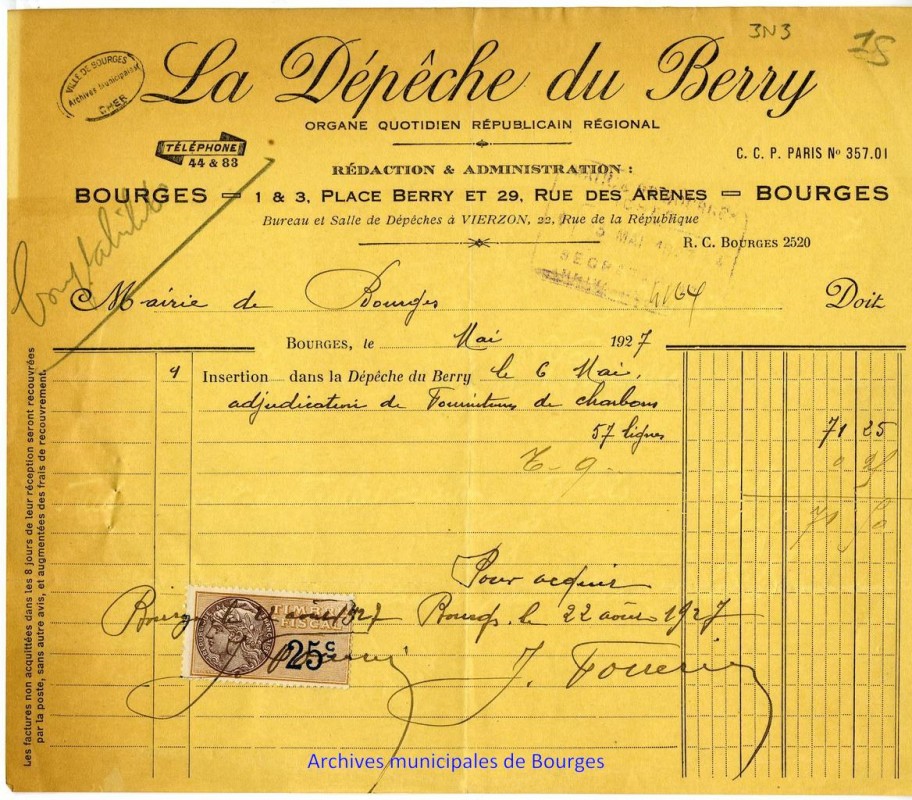 3N3
15
VILLE DE BOURGES
Archives Municipales
CHER
La Dépêche du Berry
ORGANE QUOTIDIEN RÉPUBLICAIN RÉGIONAL
TÉLÉPHONE
44 & 83
C. C. P. PARIS No 357.01
RÉDACTION & ADMINISTRATION :
BOURGES — 1 & 3, PLACE BERRY ET 29, RUE DES ARÈNES — BOURGES
Bureau et Salle de Dépêches à VIERZON, 22, Rue de la République
R. C. BOURGES 2520
MAI
4164
Comptabilité
Mairie de Bourges Doit
BOURGES, le Mai 1927
Insertion dans la Dépêche du Berry le 6 Mai,
adjudication de Fournitures de charbons
57 lignes 71 25
T. 9. 0 25
71 50
Pour acquit
Bourges le 22 août 1927
TIMBRE
FISCAL
25c
Les factures non acquittées dans les 8 jours de leur réception seront recouvrées
par la poste, sans autre avis, et augmentées des frais de recouvrement.
Archives municipales de Bourges